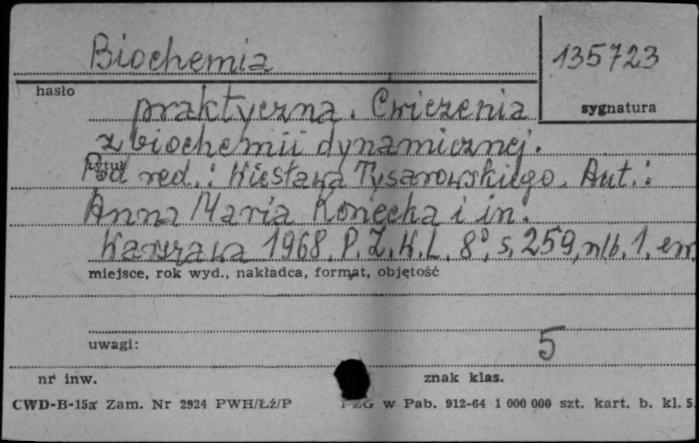 Biochemia
135723
hasło
sygnatura
praktyczna. Cwiczenia
z biochemii dynamicznej.
tytuł
Pod red.: Wiesława Tysarowskiego. Aut.:
Anna Maria Konecka i in.
Warszawa 1968. P.Z.W.L. 8°, s. 259, nlb. 1, err
miejsce, rok wyd., nakładca, format, objętość
uwagi:
5
nr inw.
znak klas.
CWD-B-15a Zam. Nr 2924 PWH/Łź/P
PZG w Pab. 912-64 1 000 000 szt. kart. b. kl. 5